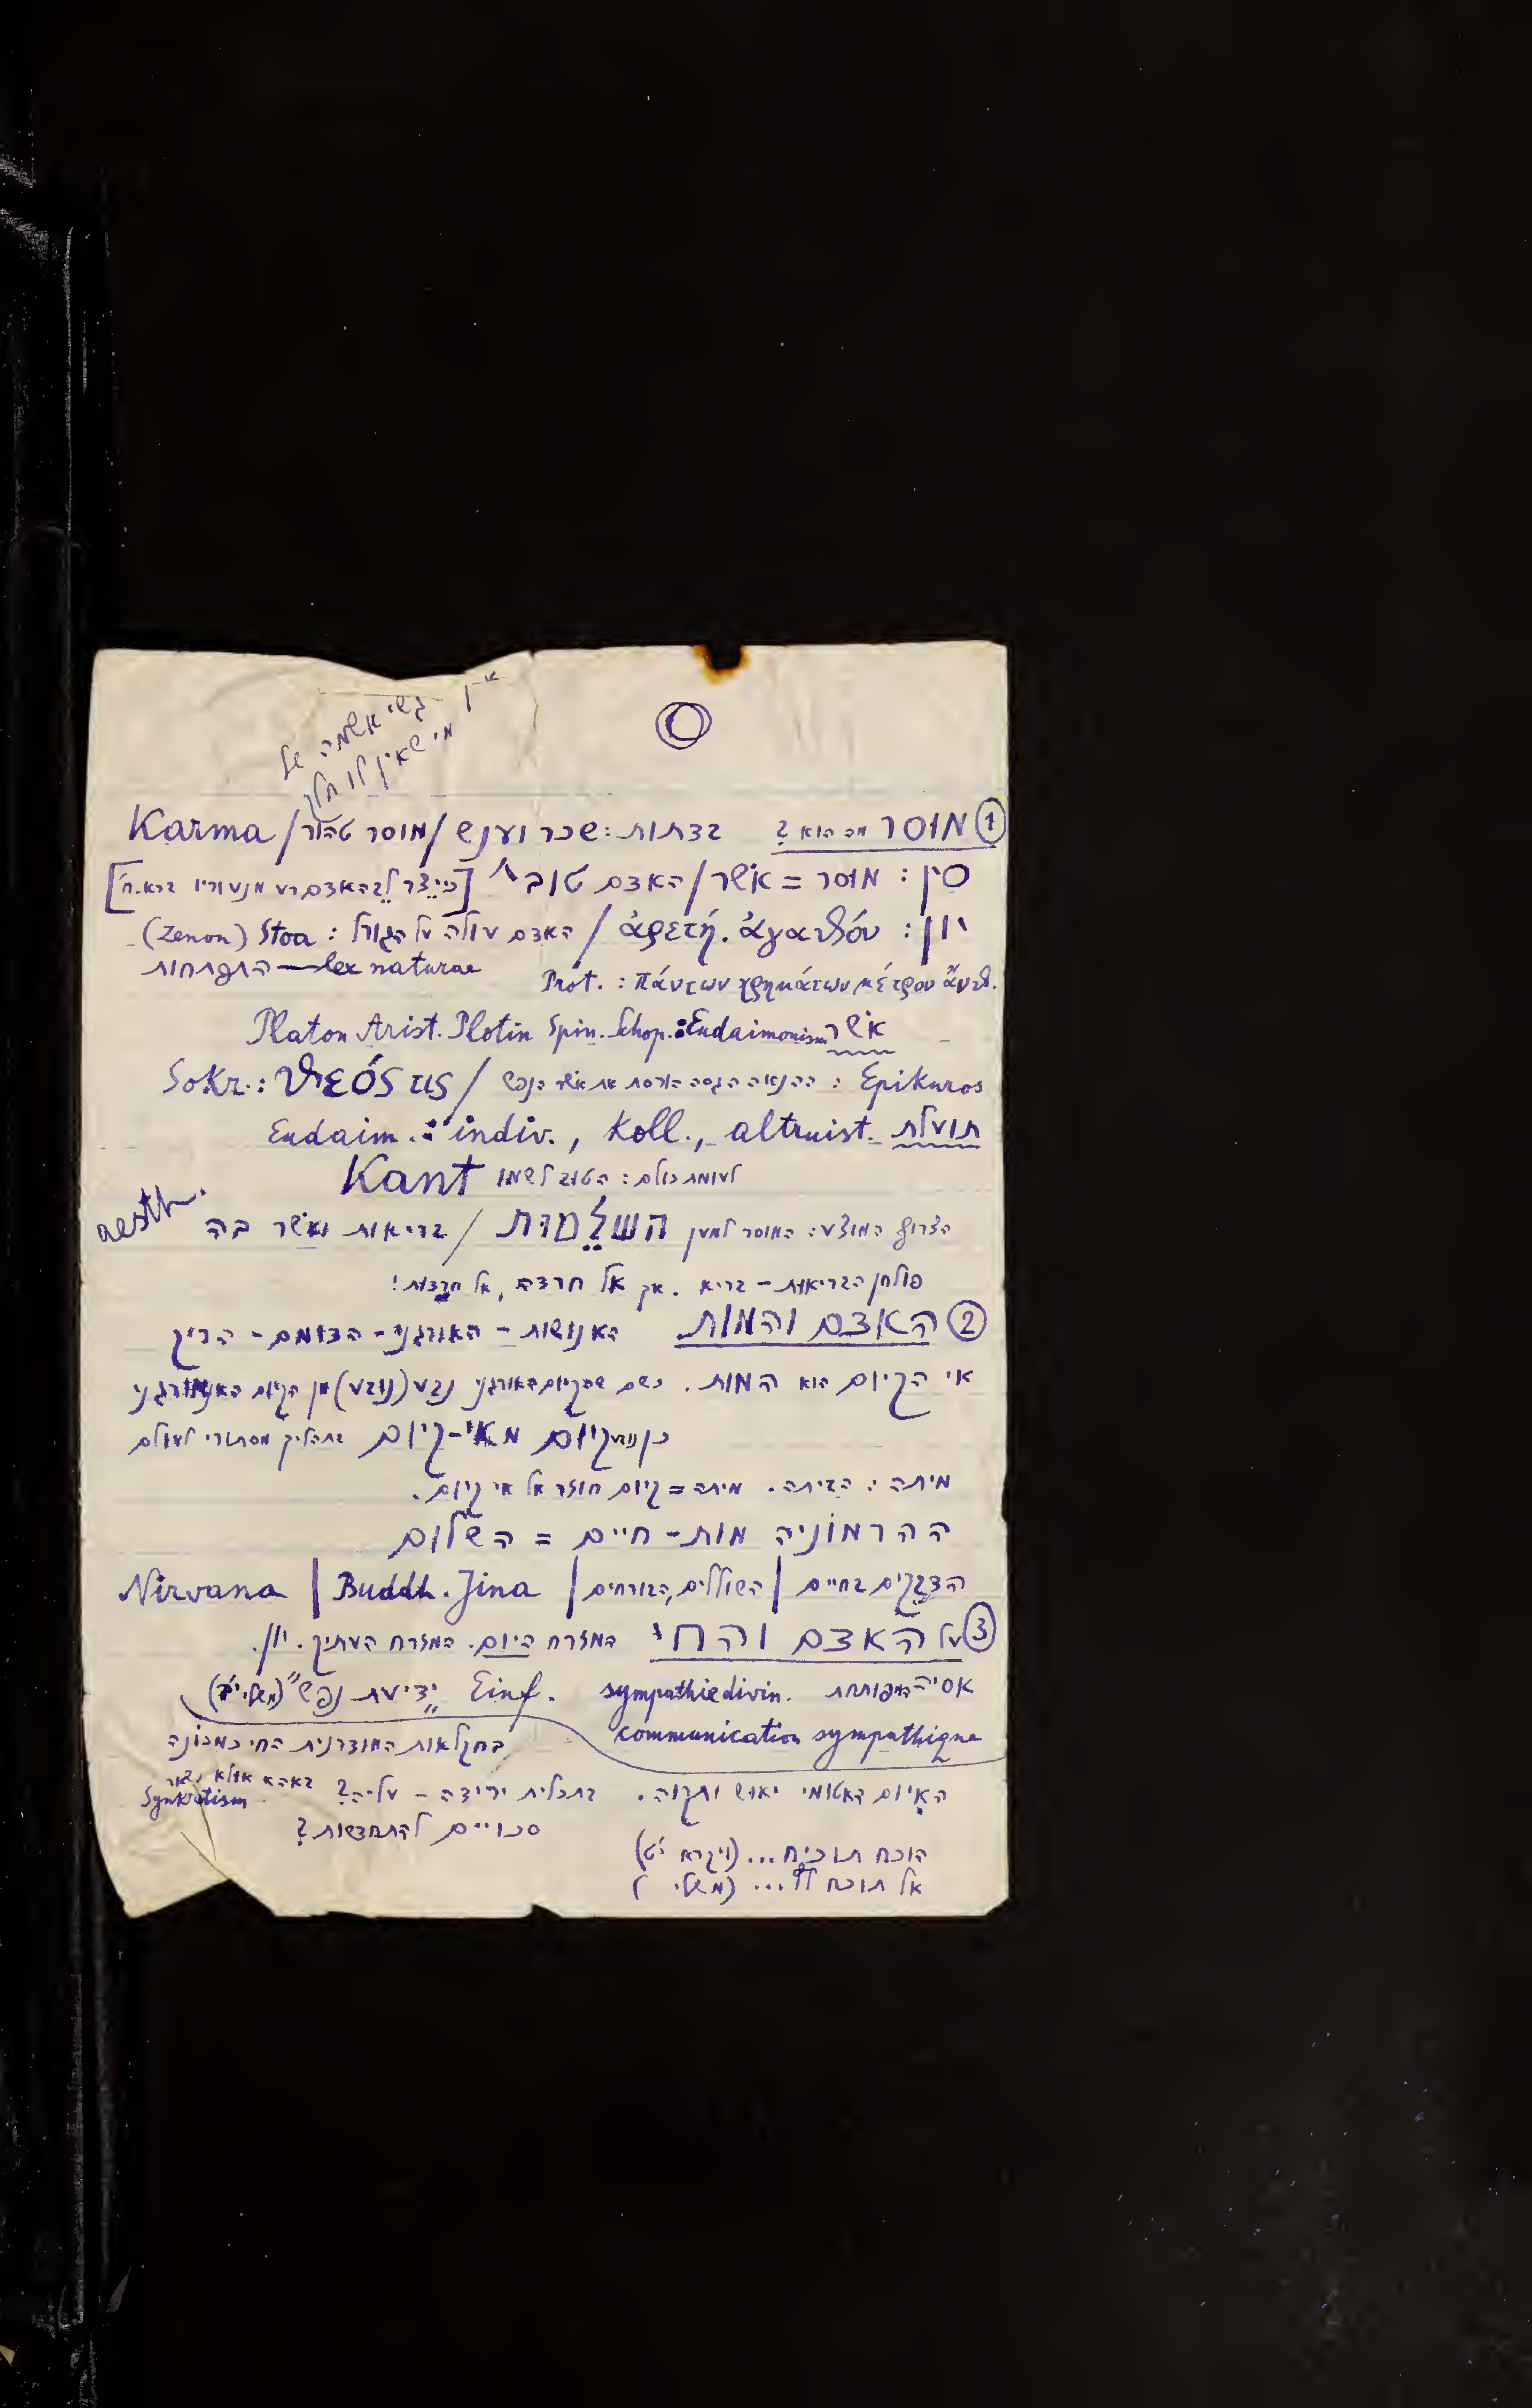 אין רגשי אשמה של
מי שאין לו חלק
① מוסר מה הוא? בדתות: שכר וענש / מוסר טהור / Karma
סין: מוסר = אֹשר / האדם טוב [כי יֵצר לֵב האדם רע מנעוריו ברא. ח']
יון: ἀρετή. ἀγαθόν / האדם עולה על הגורל : Stoa (Zenon)
Prot. : πάντων χρημάτων μέτρον ἄνθ. lex naturae — התפתחות
אֹשר Platon Arist. Plotin Spin. Schop.: Eudaimonism
Epikuros : ההנאה הגסה הורסת את אֹשר הנפש / Sokr.: θεός τις
תועלת Eudaim.: indiv., Koll., altruist.
לעומת כולם: הטוב לשמו Kant
הצרוף המוצע: המוסר למען השלֵמוּת / בריאות ואֹשר בה aesth.
פולחן הבריאות - בריא. אך אל חרדה, אל חרדות!
② האדם והמות האנושות - האורגני - הדומם - הריק
אי הקיום הוא המות. כשם שהקיום האורגני נבע (נובע) מן הקיום האנאורגני
כן נובע קיום מאי-קיום בתהליך מסתורי לעולם
מיתה: הביתה. מיתה = קיום חוזר אל אי קיום.
ההרמוֹניה מות - חיים = השלום
הדבֵקים בחיים | השוללים, הבורחים | Buddh. Jina | Nirvana
③ על האדם והחי במזרח היום. המזרח העתיק. יון.
אסיה המפותחת sympathie divin. Einf. "יֵדיעת נפש" (משלי י"ב)
communication sympathique בחקלאות המודרנית החי כמכוֹנה
האִיום האטומי יאוש ותקוה. בתכלית ירידה - עליה?
Synkretism
סכויים להתחדשות?
הוכח תוכיח... (ויקרא י"ט)
אל תוכח לץ... (משלי )